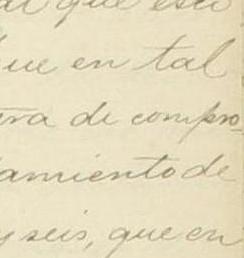 que esta
que en tal
ra de compro-
amiento de
y seis, que en